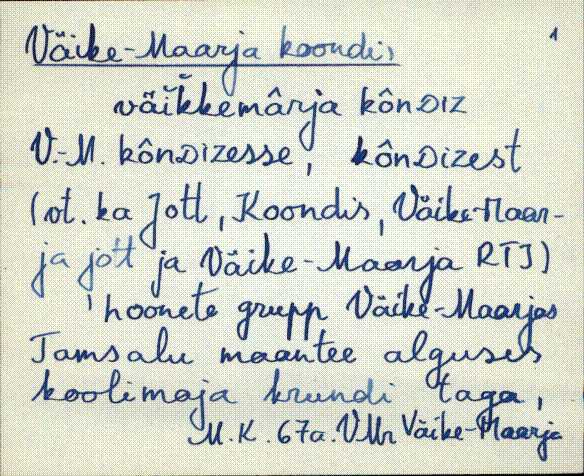 Väike-Maarja koondis
1
väĭkkemârja kônDIZ
V.-M. kônDIZesse, kônDIZest
(vt. ka Jott, Koondis, Väike-Maar-
ja jott ja Väike-Maarja RTJ)
'hoonete grupp Väike-Maarjas
Tamsalu maantee alguses
koolimaja krundi taga,
M.K. 67a. VMr Väike-Maarja